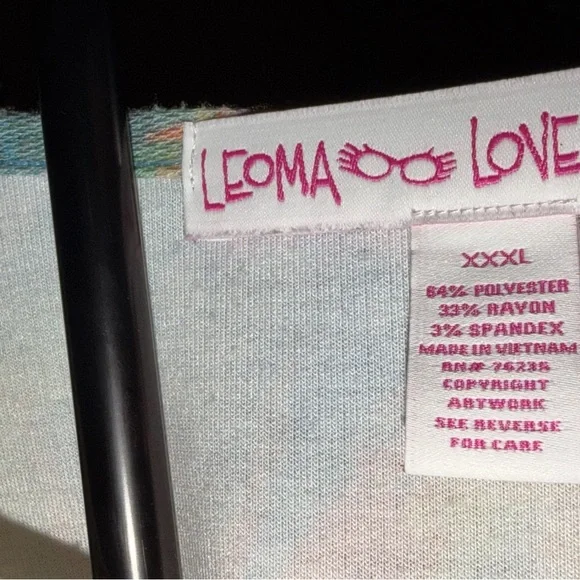 LEOMA LOVE
XXXL
64% POLYESTER
33% RAYON
3% SPANDEX
MADE IN VIETNAM
RN# 76235
COPYRIGHT
ARTWORK
SEE REVERSE
FOR CARE